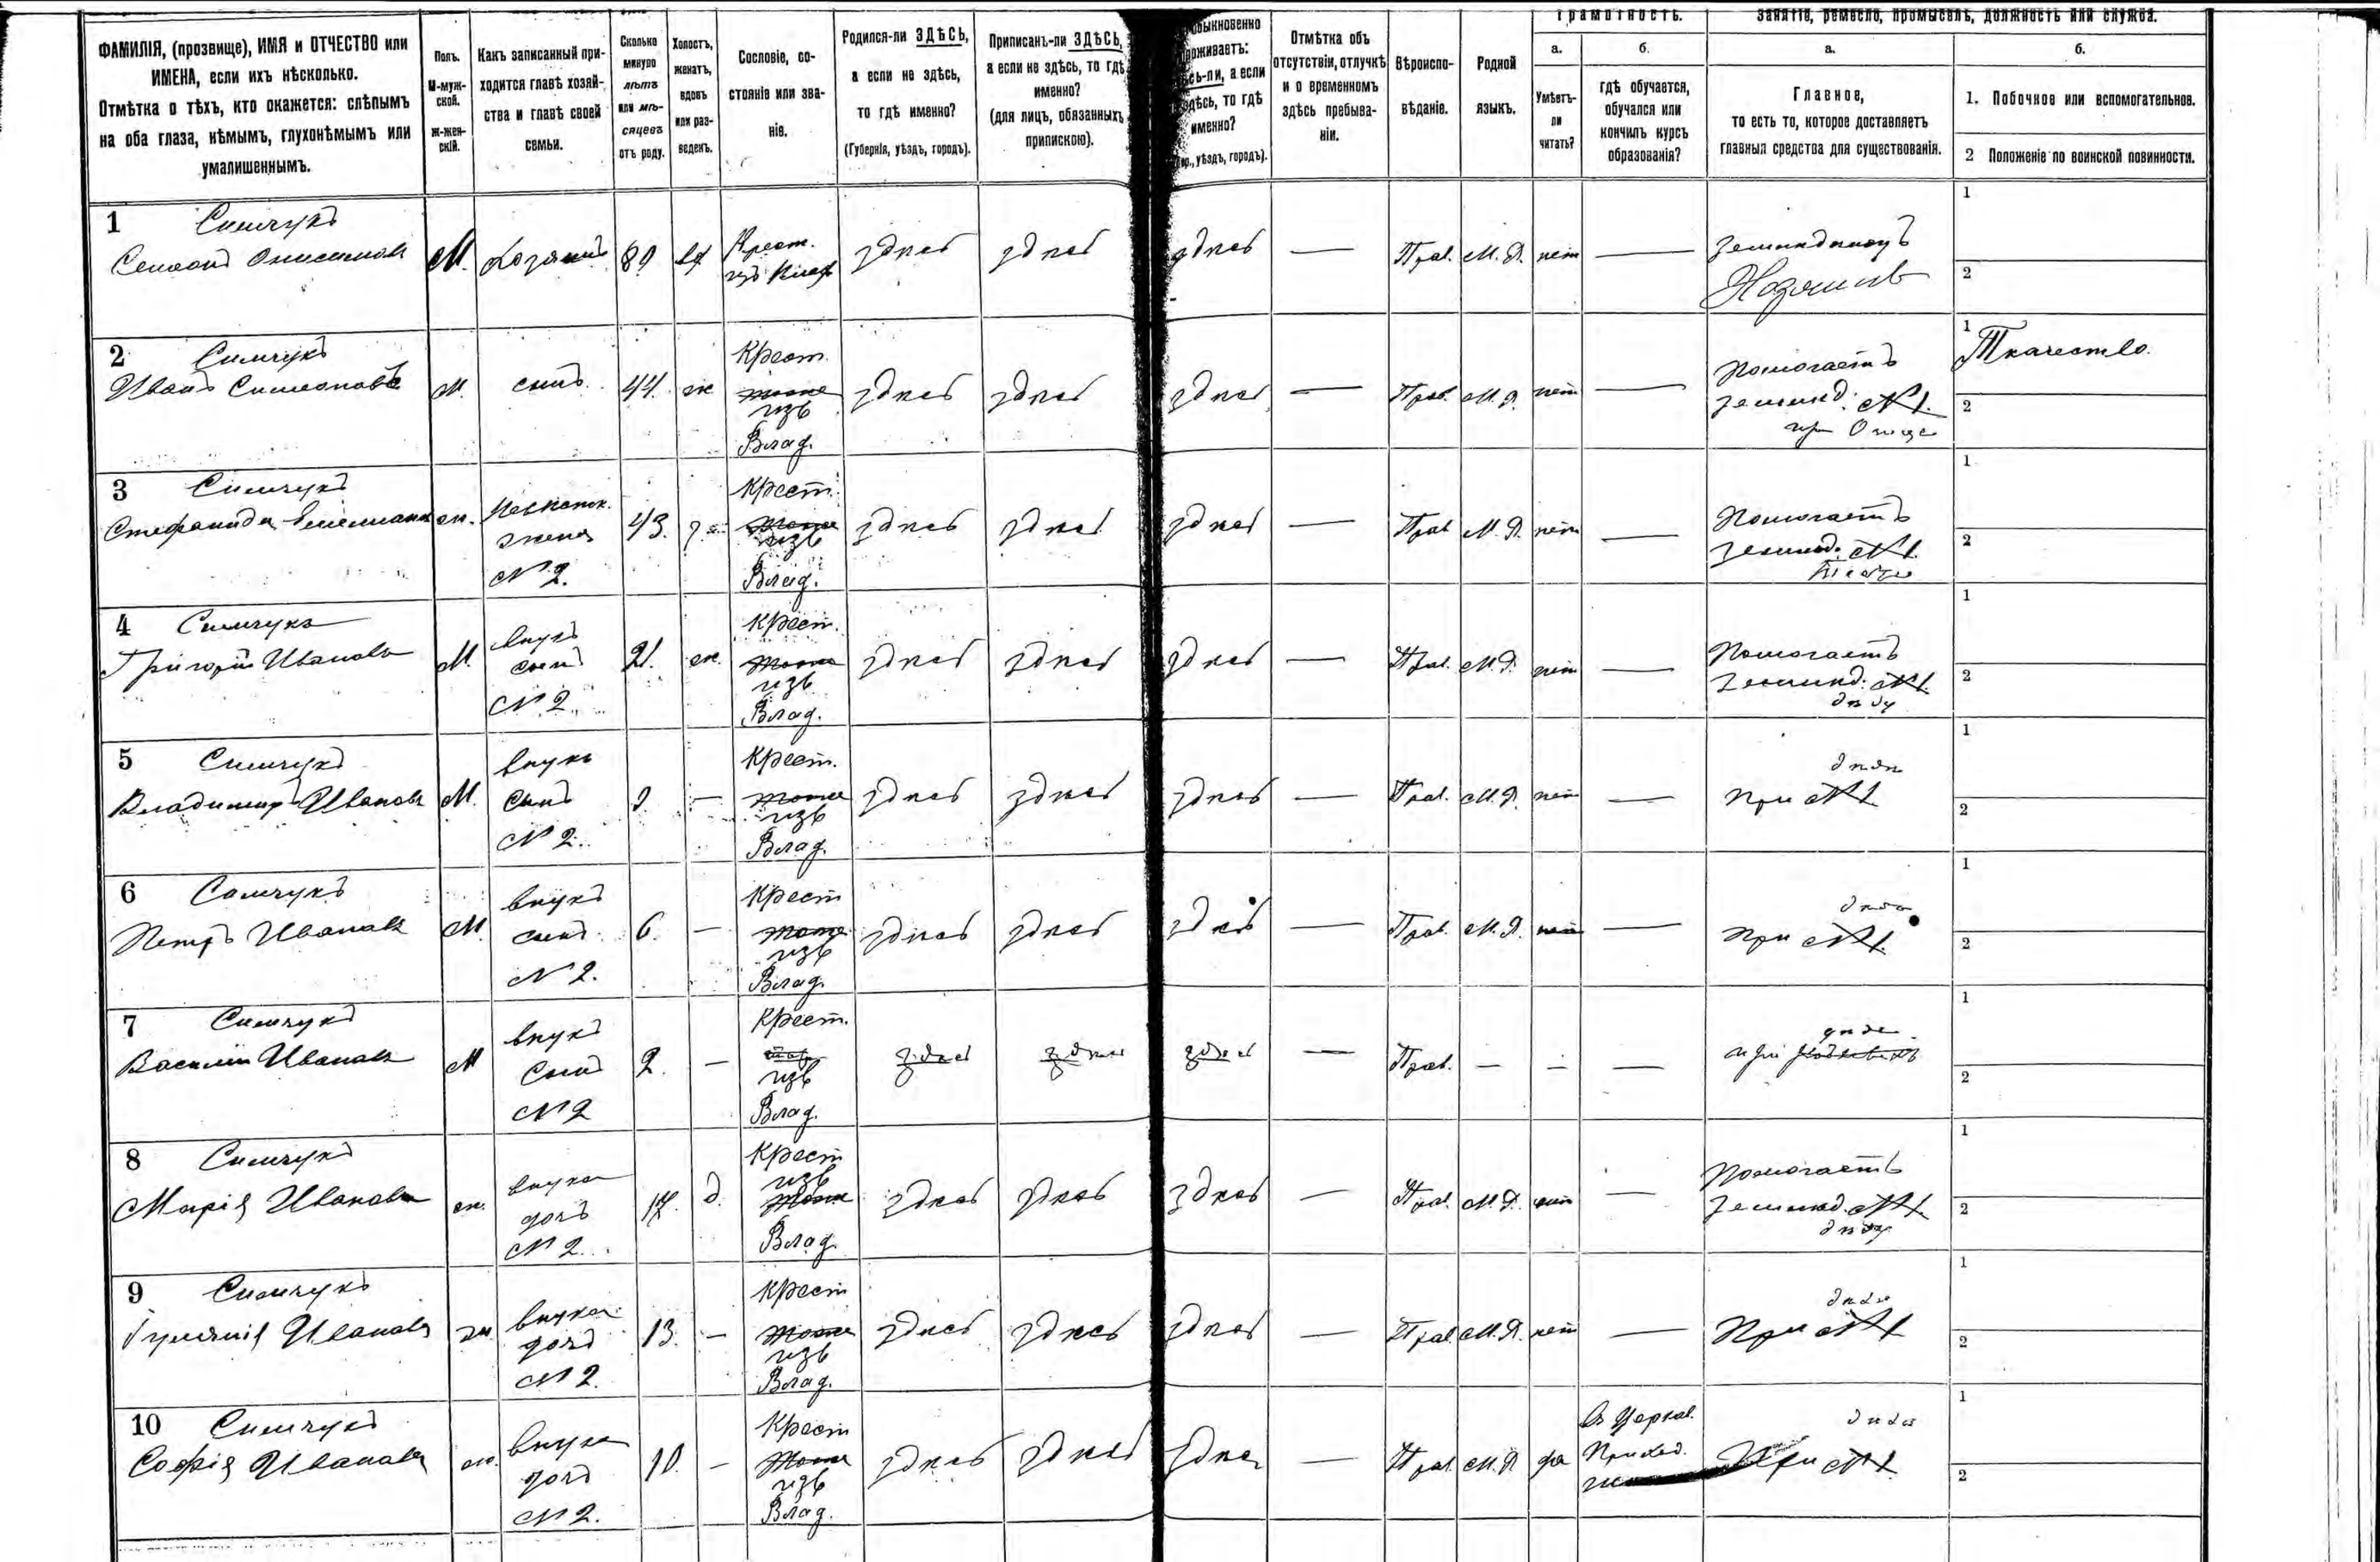 ФАМИЛІЯ, (прозвище), ИМЯ и ОТЧЕСТВО или
ИМЕНА, если ихъ нѣсколько.
Отмѣтка о тѣхъ, кто окажется: слѣпымъ
на оба глаза, нѣмымъ, глухонѣмымъ или
умалишеннымъ.
Полъ.
М-муж-
ской.
ж-жен-
скій.
Какъ записанный при-
ходится главѣ хозяй-
ства и главѣ своей
семьи.
Сколько
минуло
лѣтъ
или мѣ-
сяцевъ
отъ роду.
Холостъ,
женатъ,
вдовъ
или раз-
веденъ.
Сословіе, со-
стояніе или зва-
ніе.
Родился-ли ЗДѢСЬ,
а если не здѣсь,
то гдѣ именно?
(Губернія, уѣздъ, городъ).
Приписанъ-ли ЗДѢСЬ,
а если не здѣсь, то гдѣ
именно?
(для лицъ, обязанныхъ
припискою).
а если
здѣсь, то гдѣ
именно?
уѣздъ, городъ).
Отмѣтка объ
отсутствіи, отлучкѣ
и о временномъ
здѣсь пребыва-
ніи.
Вѣроиспо-
вѣданіе.
Родной
языкъ.
Грамотность.
а.
Умѣетъ-
ли
читать?
б.
гдѣ обучается,
обучался или
кончилъ курсъ
образованія?
Занятіе, ремесло, промыселъ, должность или служба.
а.
Главное,
то есть то, которое доставляетъ
главныя средства для существованія.
б.
1. Побочное или вспомогательное.
2 Положеніе по воинской повинности.
1 Симчукъ
М. Хозяинъ вд Крест. здѣсь здѣсь здѣсь — Прав. М. Я. нѣт —
Хозяинъ
1
2
2 Симчукъ
Иванъ Симеоновъ М. сынъ 44. ж Крест. изъ Влад. здѣсь здѣсь здѣсь — Прав. М. Я. нѣт — Помогаетъ
землед. №1.
при Отце
1 Ткачество.
2
3 Симчукъ
Стефанида М. Я. нѣт —
жена
№ 2.
43. з Крест. изъ Влад. здѣсь здѣсь здѣсь — Прав. Помогаетъ
землед. №1.
1
2
4 Симчукъ
Григорій Ивановъ М. внукъ сынъ № 2. 21. ж. Крест. изъ Влад. здѣсь здѣсь здѣсь — Прав. М. Я. нѣт — Помогаетъ
земледъ. №1.
дѣду
1
2
5 Симчукъ
Владимиръ Ивановъ М. внукъ сынъ № 2. 9. — Крест. изъ Влад. здѣсь здѣсь здѣсь — Прав. М. Я. нѣт — При №1
дѣдѣ
1
2
6 Симчукъ
Петръ Ивановъ М. внукъ сынъ № 2. 6. — Крест изъ Влад. здѣсь здѣсь здѣсь — Прав. М. Я. нѣт — при №1.
1
2
7 Симчукъ
Василій Ивановъ М внукъ сынъ № 2 2. — Крест. изъ Влад. здѣсь здѣсь здѣсь — Прав. — — — при
дѣде
1
2
8 Симчукъ
Марія Иванова ж. внука дочь № 2. 17. д. Крест изъ Влад. здѣсь здѣсь здѣсь — Прав. М. Я. нѣт — Помогаетъ
земледъ. №1.
дѣду
1
2
9 Симчукъ
Иванова ж внука дочь № 2. 13. — Крест изъ Влад. здѣсь здѣсь здѣсь — Прав. М. Я. нѣт — При №1
1
2
10 Симчукъ
Софія Иванова ж. внука дочь № 2. 10. — Крест изъ Влад. здѣсь здѣсь здѣсь — Прав. М. Я. да
Въ Церков.
Приход.
При №1
1
2